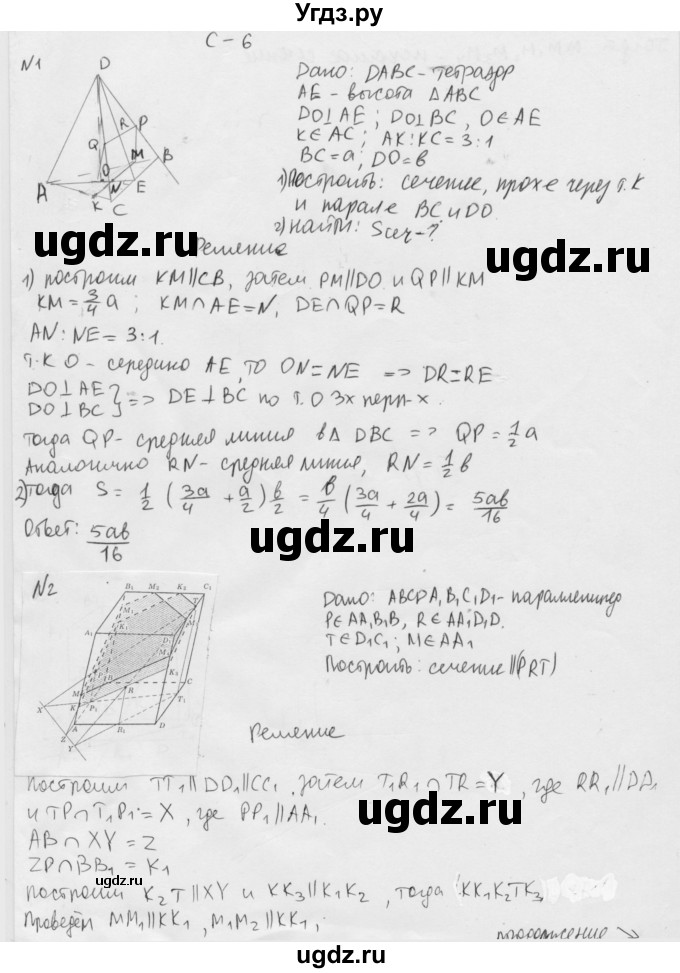 Угдз.ру
С-6
N1
Дано: DABC-тетраэдр
AE - высота ΔABC
DO⊥AE; DO⊥BC, O∈AE
K∈AC; AK:KC=3:1
BC=a; DO=в
1) Построить: сечение, прох-е через т. K
и парале BC и DO.
2) Найти: Sсеч-?
D
R
P
Q
M
B
O
A
N
E
K
C
Решение
1) построим KM||CB, затем PM||DO и QP||KM
KM=3/4 a; KM∩AE=N, DE∩QP=R
AN:NE=3:1.
т.к O-середино AE, то ON=NE => DR=RE
DO⊥AE
DO⊥BC } => DE⊥BC по т. о 3х перп-х.
тогда QP-средняя линия в Δ DBC => QP=1/2 a
Аналогично RN-средняя линия, RN=1/2 в
2) тогда S= 1/2 (3a/4 + a/2) в/2 = в/4 (3a/4 + 2a/4)= 5aв/16
Ответ: 5aв/16
N2
Дано: ABCDA₁B₁C₁D₁-параллелипед
P∈AA₁B₁B, R∈AA₁D₁D.
T∈D₁C₁; M∈AA₁
Построить: сечение||(PRT)
B₁ M₂ K₂ C₁
A₁
K₁
X
Z
Y
A
B₁
D
P₁
R
T₁
C
Решение
Построим TT₁||DD₁||CC₁, затем T₁R₁∩TR=Y, где RR₁||DA₁
и TP∩T₁P₁=X, где PP₁||AA₁.
AB∩XY=Z
ZP∩BB₁=K₁
Построим K₂T||XY и KK₃||K₁K₂, тогда (KK₁K₂TK₃
Проведём MM₁||KK₁, M₁M₂||KK₁,
продолжение ↘
ugdz.ru
ugdz.ru
ugdz.ru
ugdz.ru
ugdz.ru
ugdz.ru
ugdz.ru
ugdz.ru
ugdz.ru